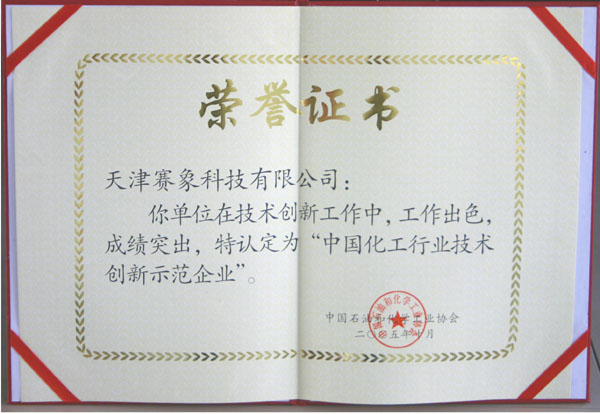 荣誉证书
天津赛象科技有限公司：
你单位在技术创新工作中，工作出色，
成绩突出，特认定为“中国化工行业技术
创新示范企业”。
中国石油和化学工业协会
二〇〇五年十月